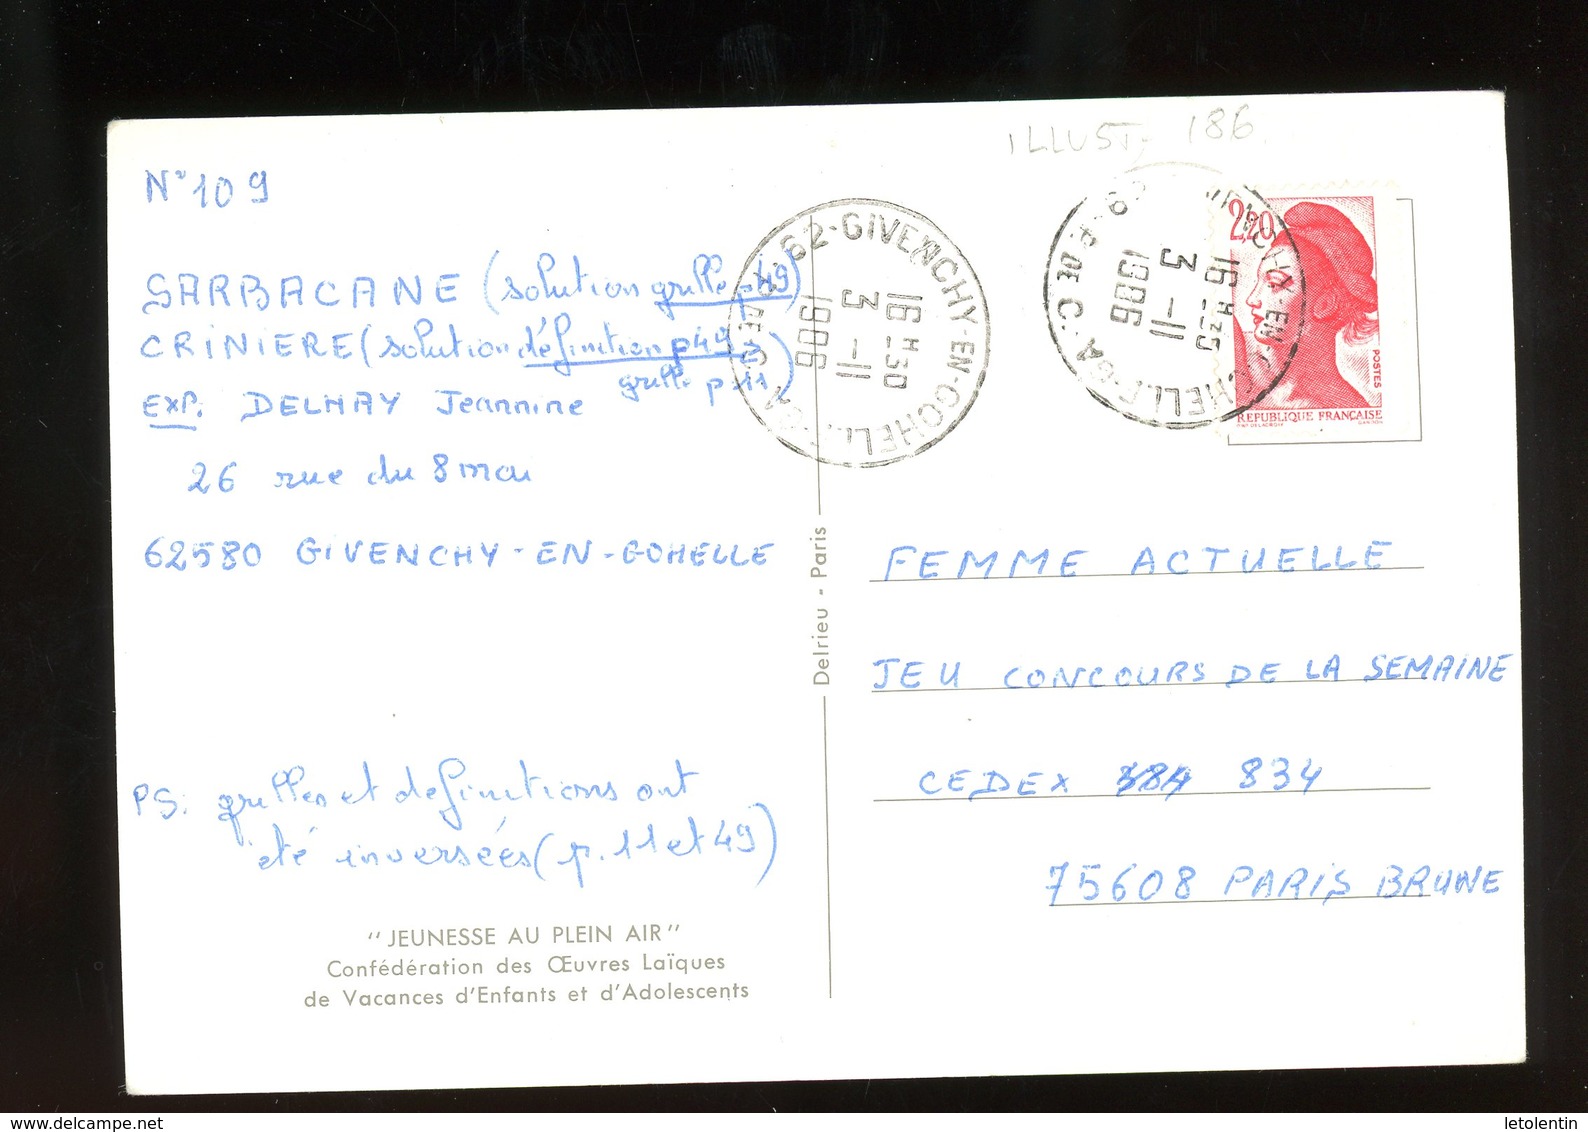 ILLUST. 186
N° 109
SARBACANE (solution grille p 49)
CRINIERE (solution définition p 49
grille p 11)
EXP. DELHAY Jeannine
26 rue du 8 mai
62580 GIVENCHY-EN-GOHELLE
PS: grilles et definitions ont
été inversées (p. 11 et 49)
"JEUNESSE AU PLEIN AIR"
Confédération des Œuvres Laïques
de Vacances d'Enfants et d'Adolescents
Delrieu - Paris
62-GIVENCHY-EN-GOHELLE
16 H 30
3 -11
1986
P. DE C.
16 H
3 -11
1986
2,20
POSTES
REPUBLIQUE FRANÇAISE
FEMME ACTUELLE
JEU CONCOURS DE LA SEMAINE
CEDEX 834
75608 PARIS BRUNE
www.delcampe.net
letolentin